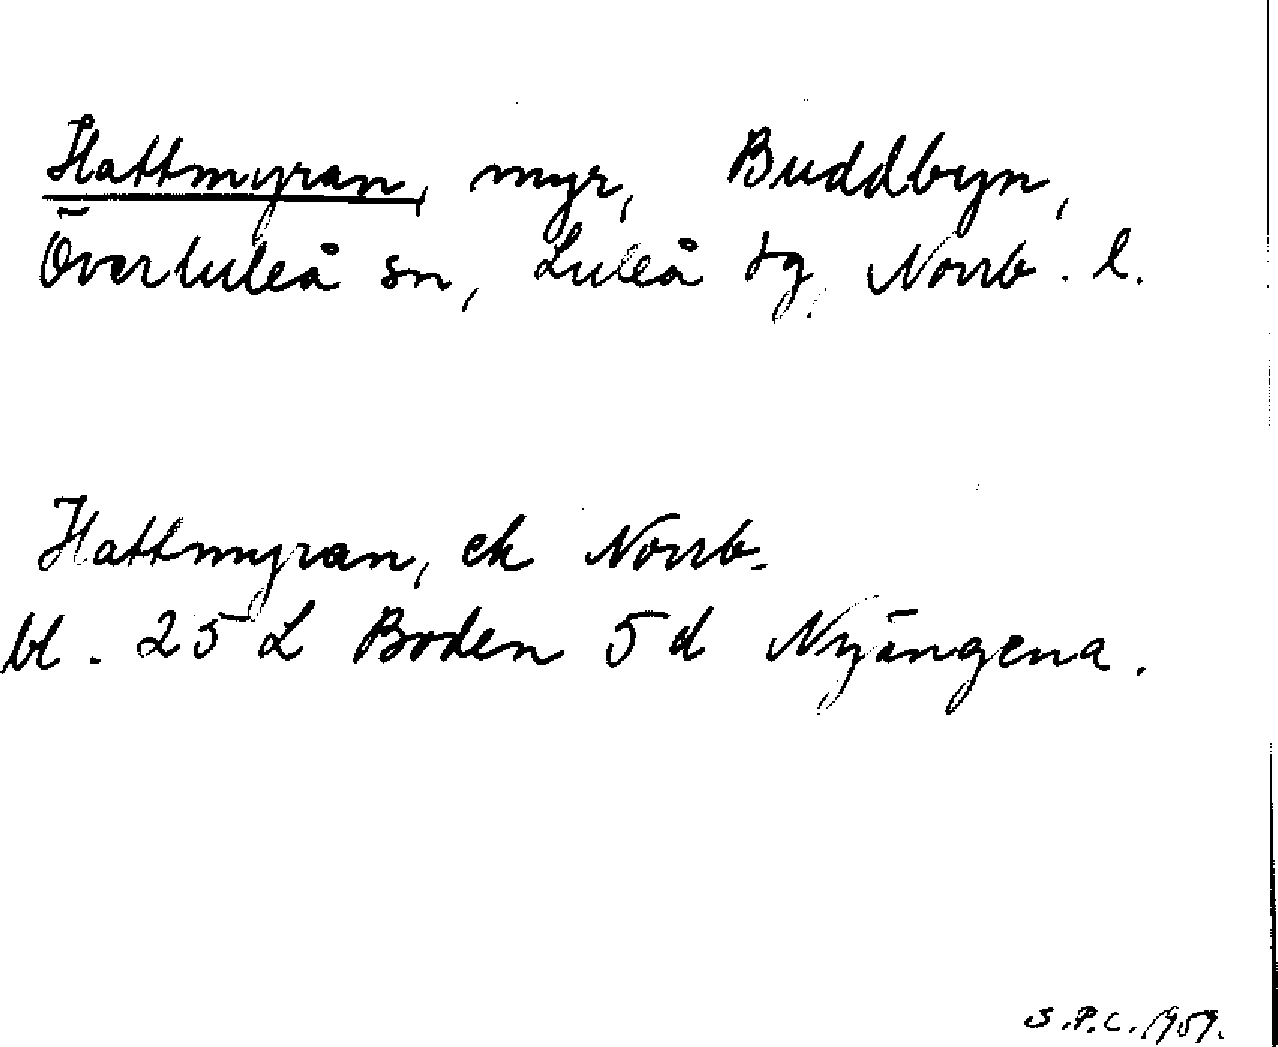 Hattmyran, myr, Buddbyn,
Överluleå sn, Luleå tg, Norrb. l.
Hattmyran, ek Norrb.
bl. 25 L Boden 5 d Nyängena.
S.P.C. 1959.